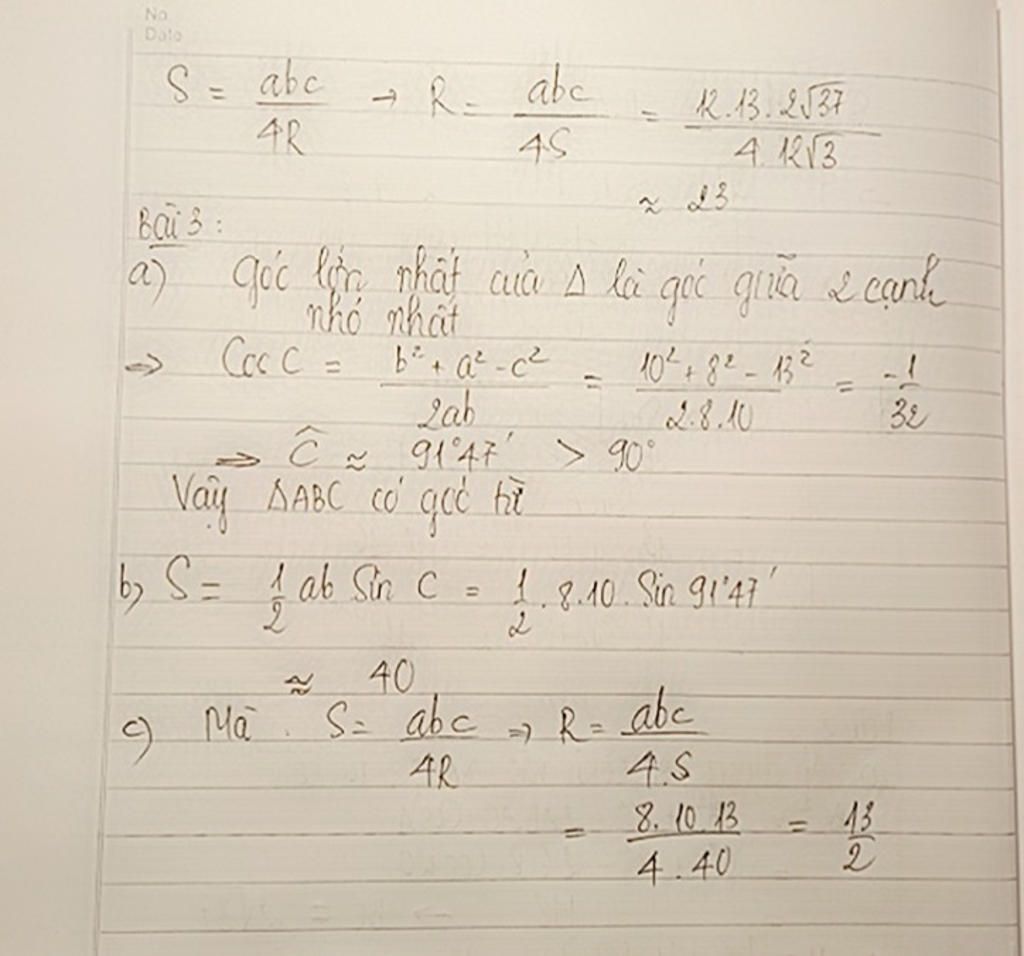 No.
Date
S = abc/4R → R = abc/4S = 12.13.2√37/4.12√3
≈ 23
Bài 3:
a) Góc lớn nhất của Δ là góc giữa 2 cạnh
nhỏ nhất
=> Cos C = b² + a² - c²/2ab = 10² + 8² - 13²/2.8.10 = -1/32
=> Ĉ ≈ 91°47' > 90°
Vậy ΔABC có góc tù
b) S = 1/2 ab Sin C = 1/2 . 8.10. Sin 91°47'
≈ 40
c) Mà . S = abc/4R => R = abc/4.S
= 8.10.13/4.40 = 13/2